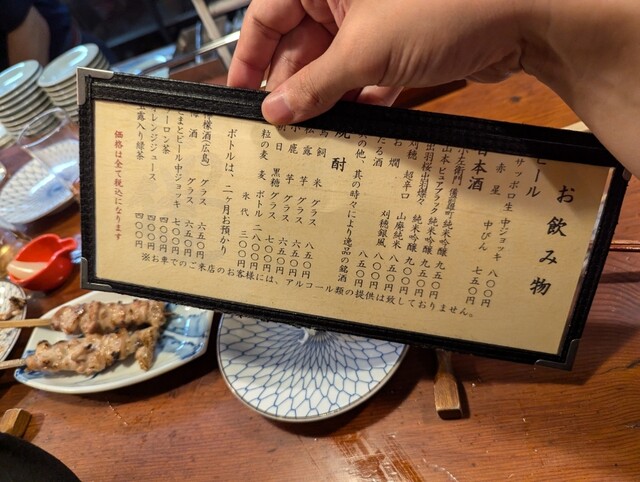 お飲み物
ビール
サッポロ生 中ジョッキ 八〇〇円
赤星 中びん 七五〇円
日本酒
小左衛門 備前雄町純米吟醸 九五〇円
山本 ピュアブラック 純米吟醸 九五〇円
出羽桜 出羽燦々 純米吟醸 九〇〇円
刈穂 超辛口 山廃純米 八五〇円
お燗 刈穂銀風
の他、其の時々により逸品の銘酒
焼酎
鳥飼 米 グラス 八五〇円
松露 芋 グラス 六五〇円
小鹿 芋 グラス 六五〇円
朝日 黒糖 グラス 七〇〇円
一粒の麦 麦 ボトル 二八〇〇円
氷代 三〇〇円
ボトルは、二ヶ月お預か
檬酒(広島) グラス 六五〇円
酒 グラス 六五〇円
まとビール 中ジョッキ 七〇〇円
ーロン茶 四〇〇円
レンジジュース 四〇〇円
玉露入り緑茶 四〇〇円
価格は全て税込になります
※お車でのご来店のお客様には、アルコール類の提供は致しておりません。